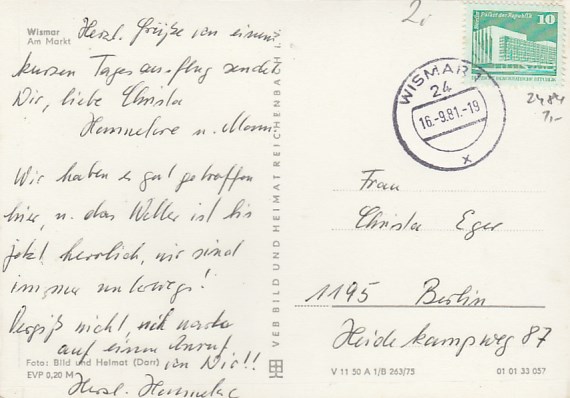 Wismar
Am Markt
Herzl. Grüße von einem
kurzen Tagesausflug sendet
Dir, liebe Christa
Hannelore u. Mann
Wir haben es gut getroffen
hier, u. das Wetter ist bis
jetzt herrlich, wir sind
immer unterwegs!
Vergiß nicht, ich warte
auf einen Anruf
von Dir!!
Herzl. Hannelore
Foto: Bild und Heimat (Darr)
EVP 0,20 M
VEB BILD UND HEIMAT REICHENBACH i. V.
Palast der Republik
10
WISMAR 1
24
16.-9.81.-19
x
2484
7,-
Frau
Christa Eger
1195 Berlin
Heidekampweg 87
V 11 50 A 1/B 263/75
01 01 33 057